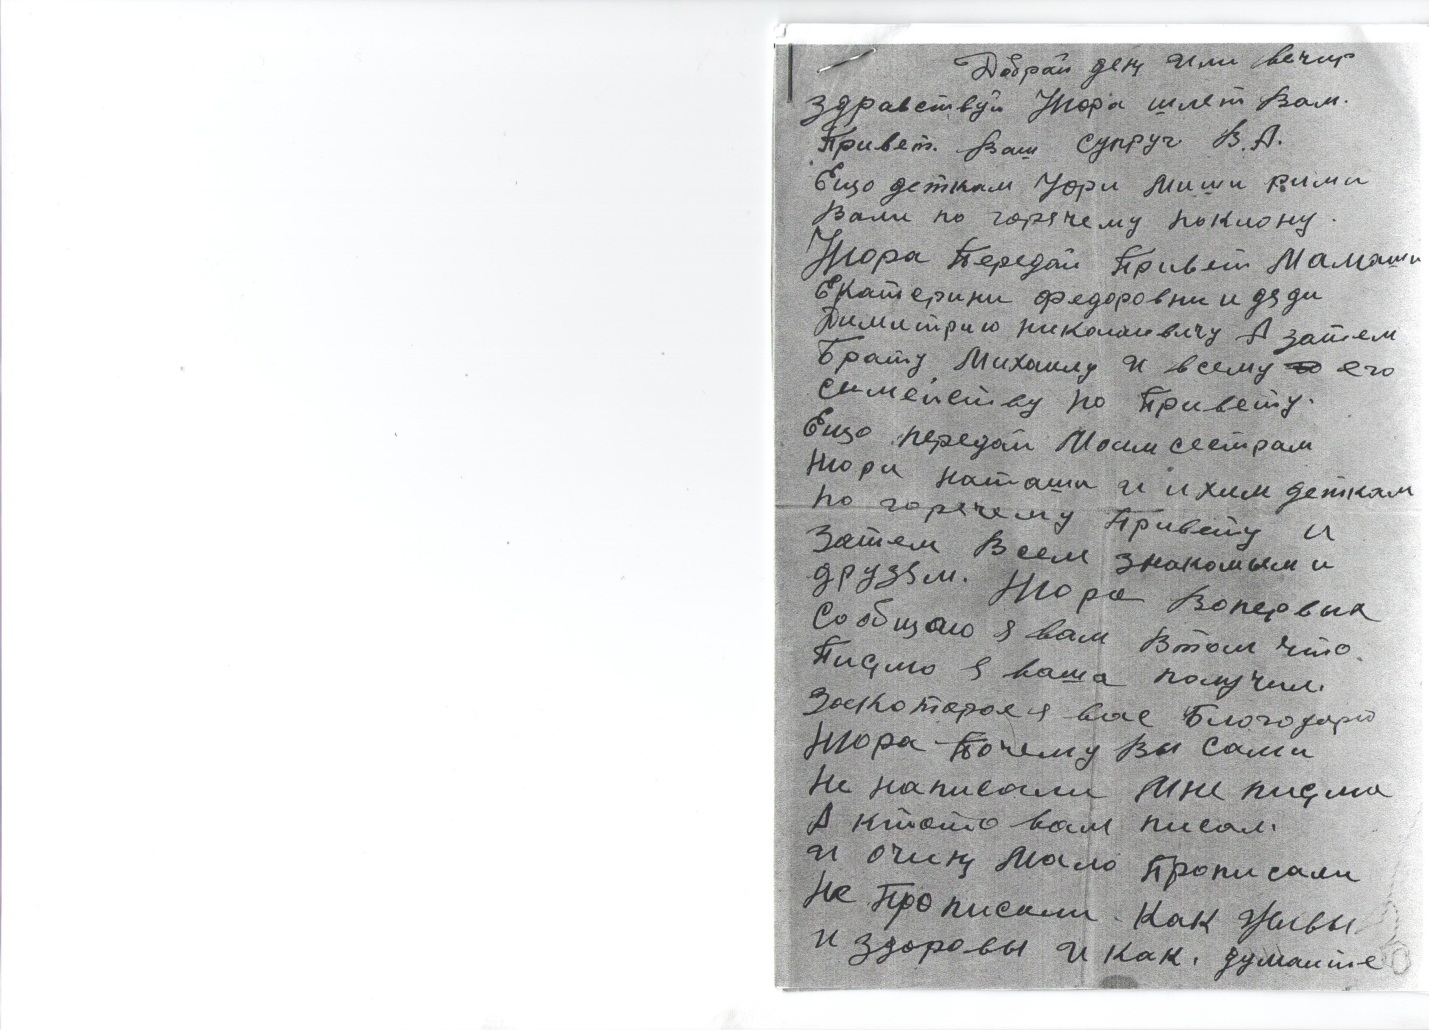 Добрай денј или вечир
здравствуй Нюра шлет Вам.
Привет. Ваш супруг В.А.
Ещо деткам Юри Миши Рими
Вали по горячему поклону.
Нюра Передай Привет Мамаши
Екатерини Федоровни и дяди
Димитрию николаивичу А затем
Брату Михаилу и всему его
симейству по Привету.
Ещо передай Моим сестрам
Нюри наташи и ихим деткам
по горячему Привету и
Затем Всем знакомым и
друзям. Нюра Вопервых
Сообщаю я вам Втом что
Писмо я ваша получил.
Закоторое я вас Благодарю
Нюра Почему Вы сами
Не написали Мне писма
А ктото вам писал.
и очинј Мало Прописали
Не Прописали Как Живы
и здоровы и как. думаите